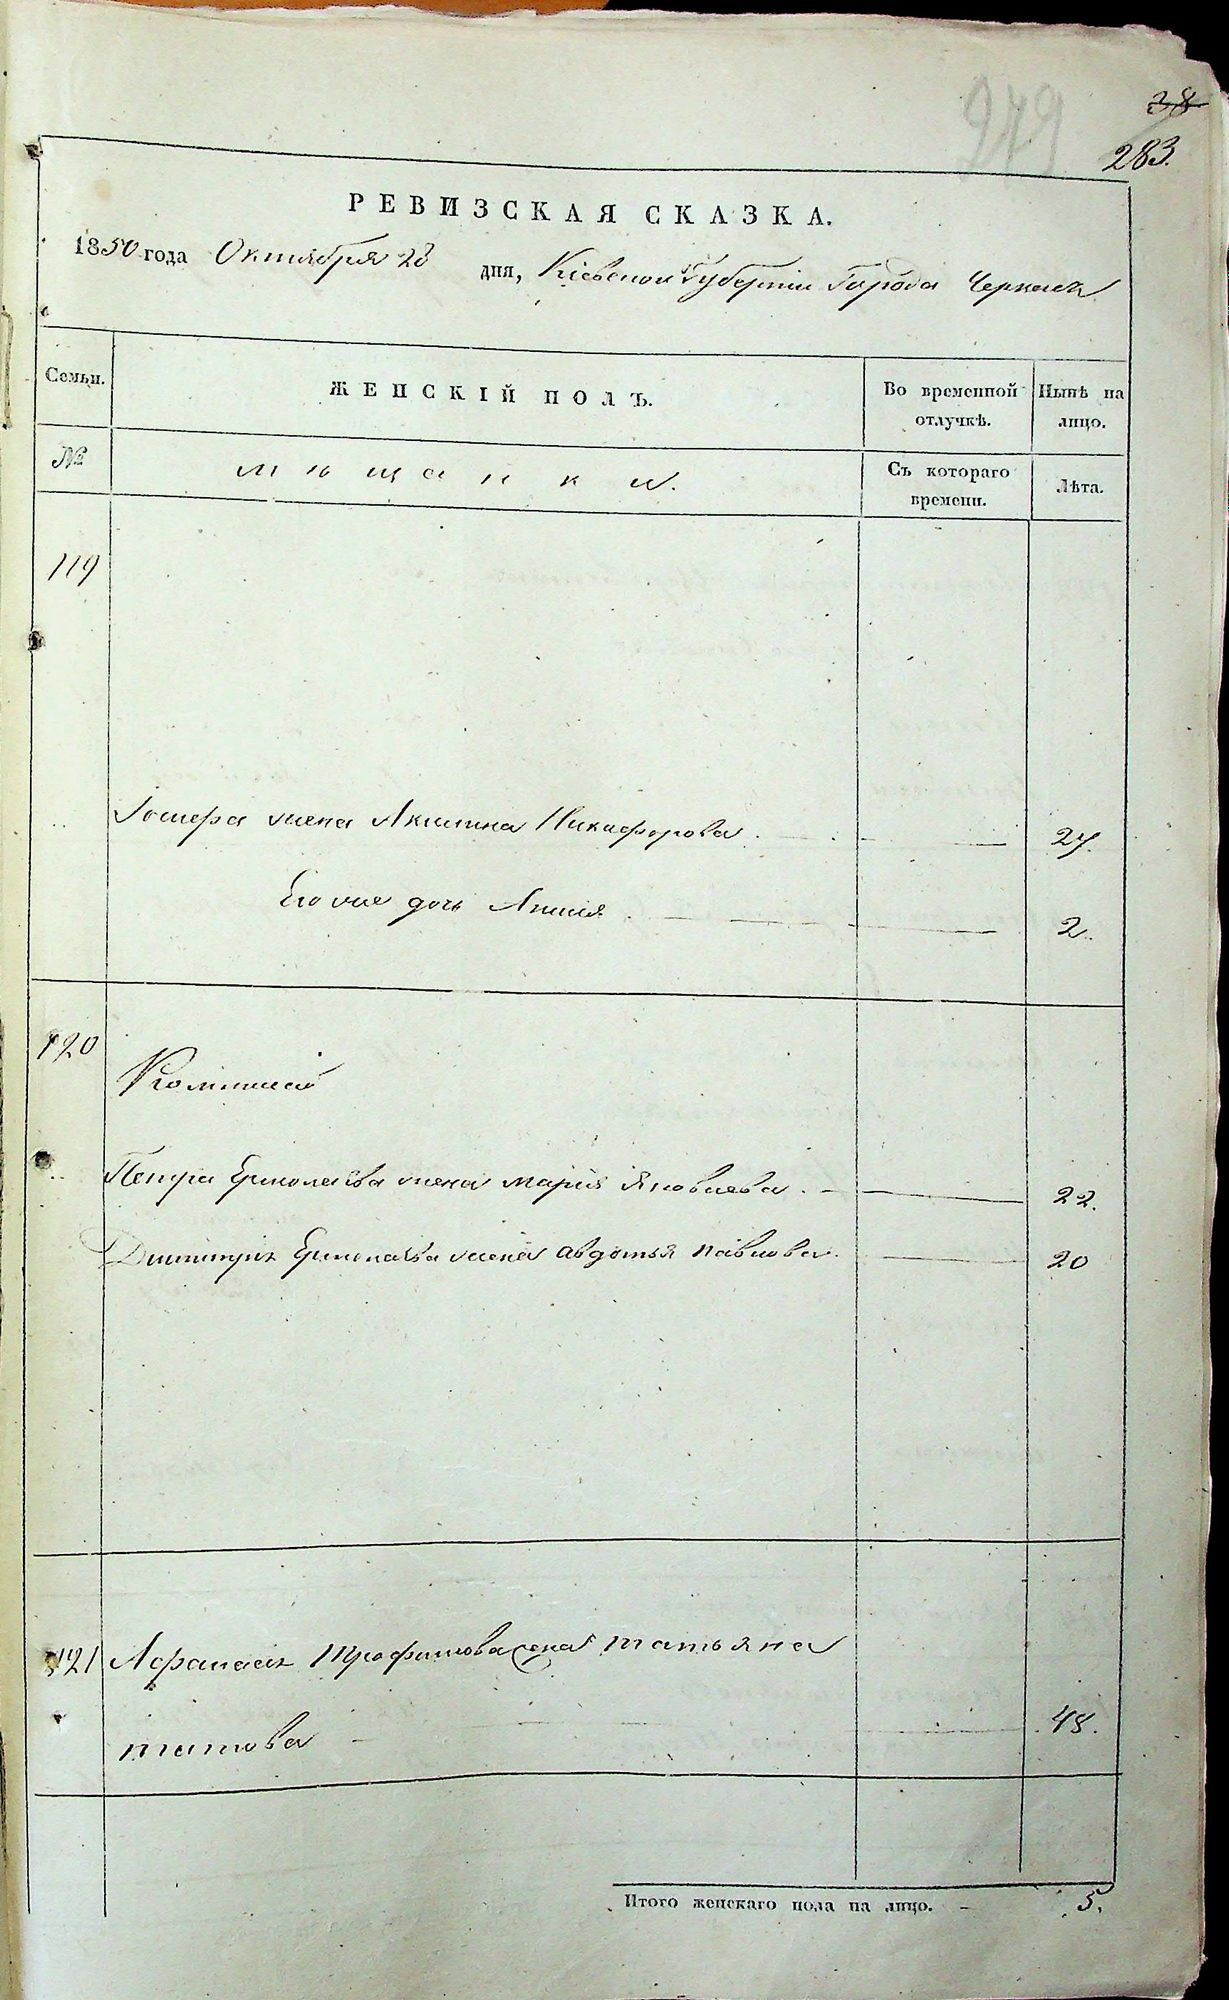 38
279
283.
РЕВИЗСКАЯ СКАЗКА.
1850 года Октября 28 дня, Кіевской Губерніи Города Черкасъ
Семьи.
ЖЕНСКІЙ ПОЛЪ.
Во временной отлучкѣ.
Нынѣ на лицо.
№
мѣщанки.
Съ котораго времени.
Лѣта.
119
жена Акилина Никифорова 27.
Его же дочь 2.
120
Петра Ермолаева жена Марія Яковлева. 22.
Димитрія Ермолаева жена Авдотья Павлова. 20
121 Афанасія Трофимова жена Татьяна
48.
Итого женскаго пола на лицо. 5.